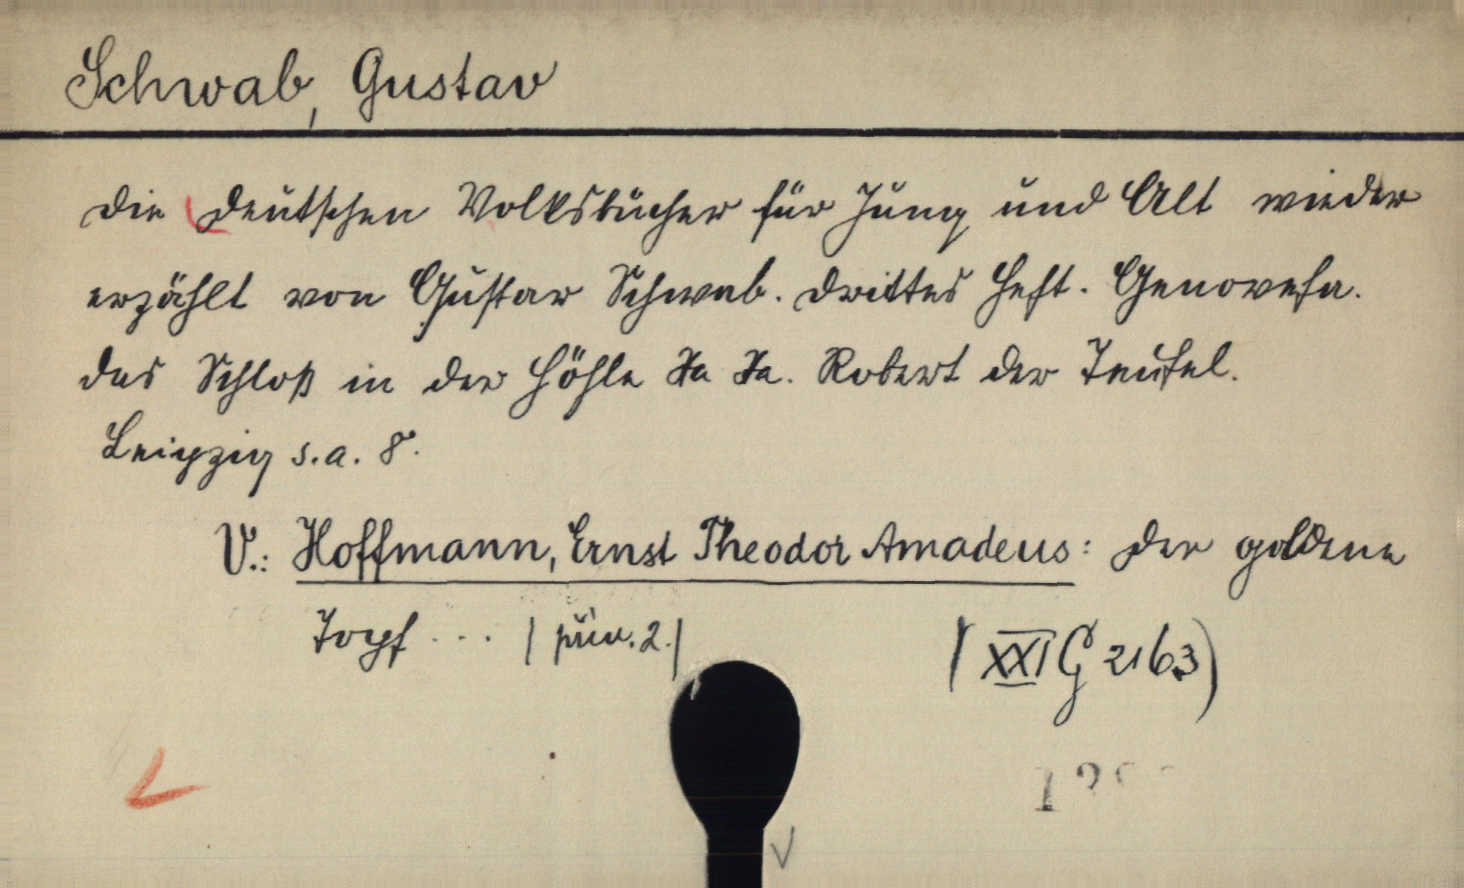 Schwab, Gustav
Die Deutschen Volksbücher für Jung und Alt wieder
erzählt von Gustav Schwab. Drittes Heft. Genovefa.
Das Schloß in der Höhle Xa Xa. Robert der Teufel.
Leipzig s.a. 8°.
V.: Hoffmann, Ernst Theodor Amadeus: Der goldene
Topf ... | piur. 2.|
(XXI G 2163)